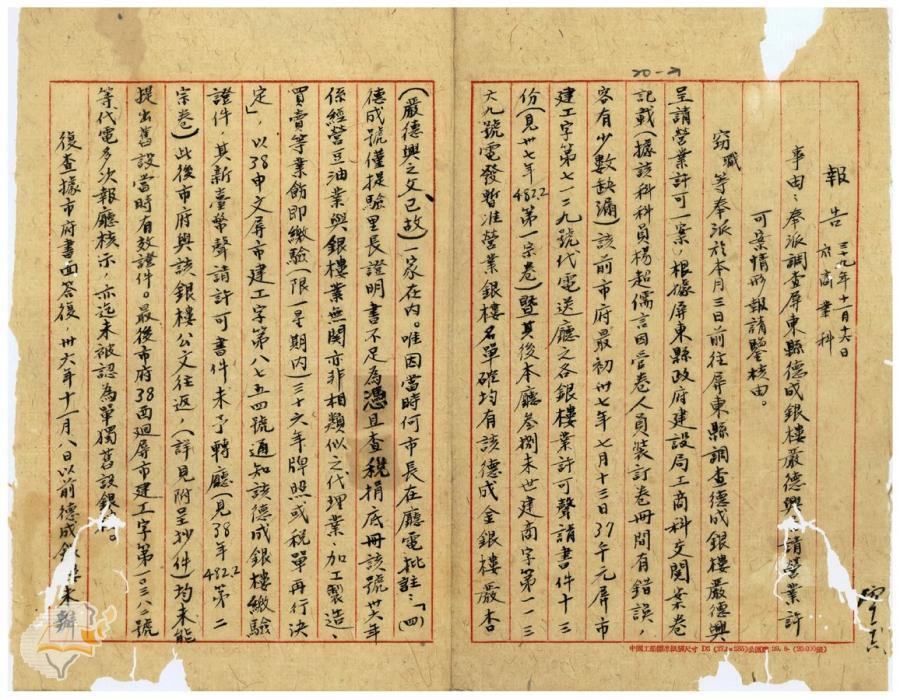 報告 三十九年十一月十六日
於商業科
事由：奉派調查屏東縣德成銀樓嚴德興請營業許
可案情形報請鑒核由。
竊職等奉派於本月三日前往屏東縣調查德成銀樓嚴德興
呈請營業許可一案，根據屏東縣政府建設局工商科交閱案卷
記載（據該科科員楊超儒言因管卷人員裝訂卷冊間有錯誤，
容有少數缺漏）該前市府最初卅七年七月十三日37午元屏市
建工字第七一二九號代電送廳之各銀樓業許可聲請書件十三
份（見卅七年482.2第一宗卷）暨其後本廳叁捌未世建商字第一三
六九號電發暫准營業銀樓名單確均有該德成金銀樓嚴杏
（嚴德興之父、已故）一家在內。唯因當時何市長在廳電批註：「（四）
德成號僅提驗里長證明書不足為憑且查稅捐底冊該號卅六年
係經營豆油業與銀樓業無關亦非相類似之代理業、加工製造、
買賣等業飭即繳驗（限一星期內）三十六年牌照或稅單再行決
定」，以38申文屏市建工字第八七五四號通知該德成銀樓繳驗
證件，其新臺幣聲請許可書件未予轉廳（見38年482.2第二
宗卷）此後市府與該銀樓公文往返，（詳見附呈抄件）均未能
提出舊設當時有效證件。最後市府38酉迴屏市建工字第一〇三八二號
等代電多次報廳核示，亦迄未被認為單獨舊設銀。
復查據市府書面答復，卅六年十一月八日以前德成銀未辦
20-21
中國工船標準紙張尺寸 D5